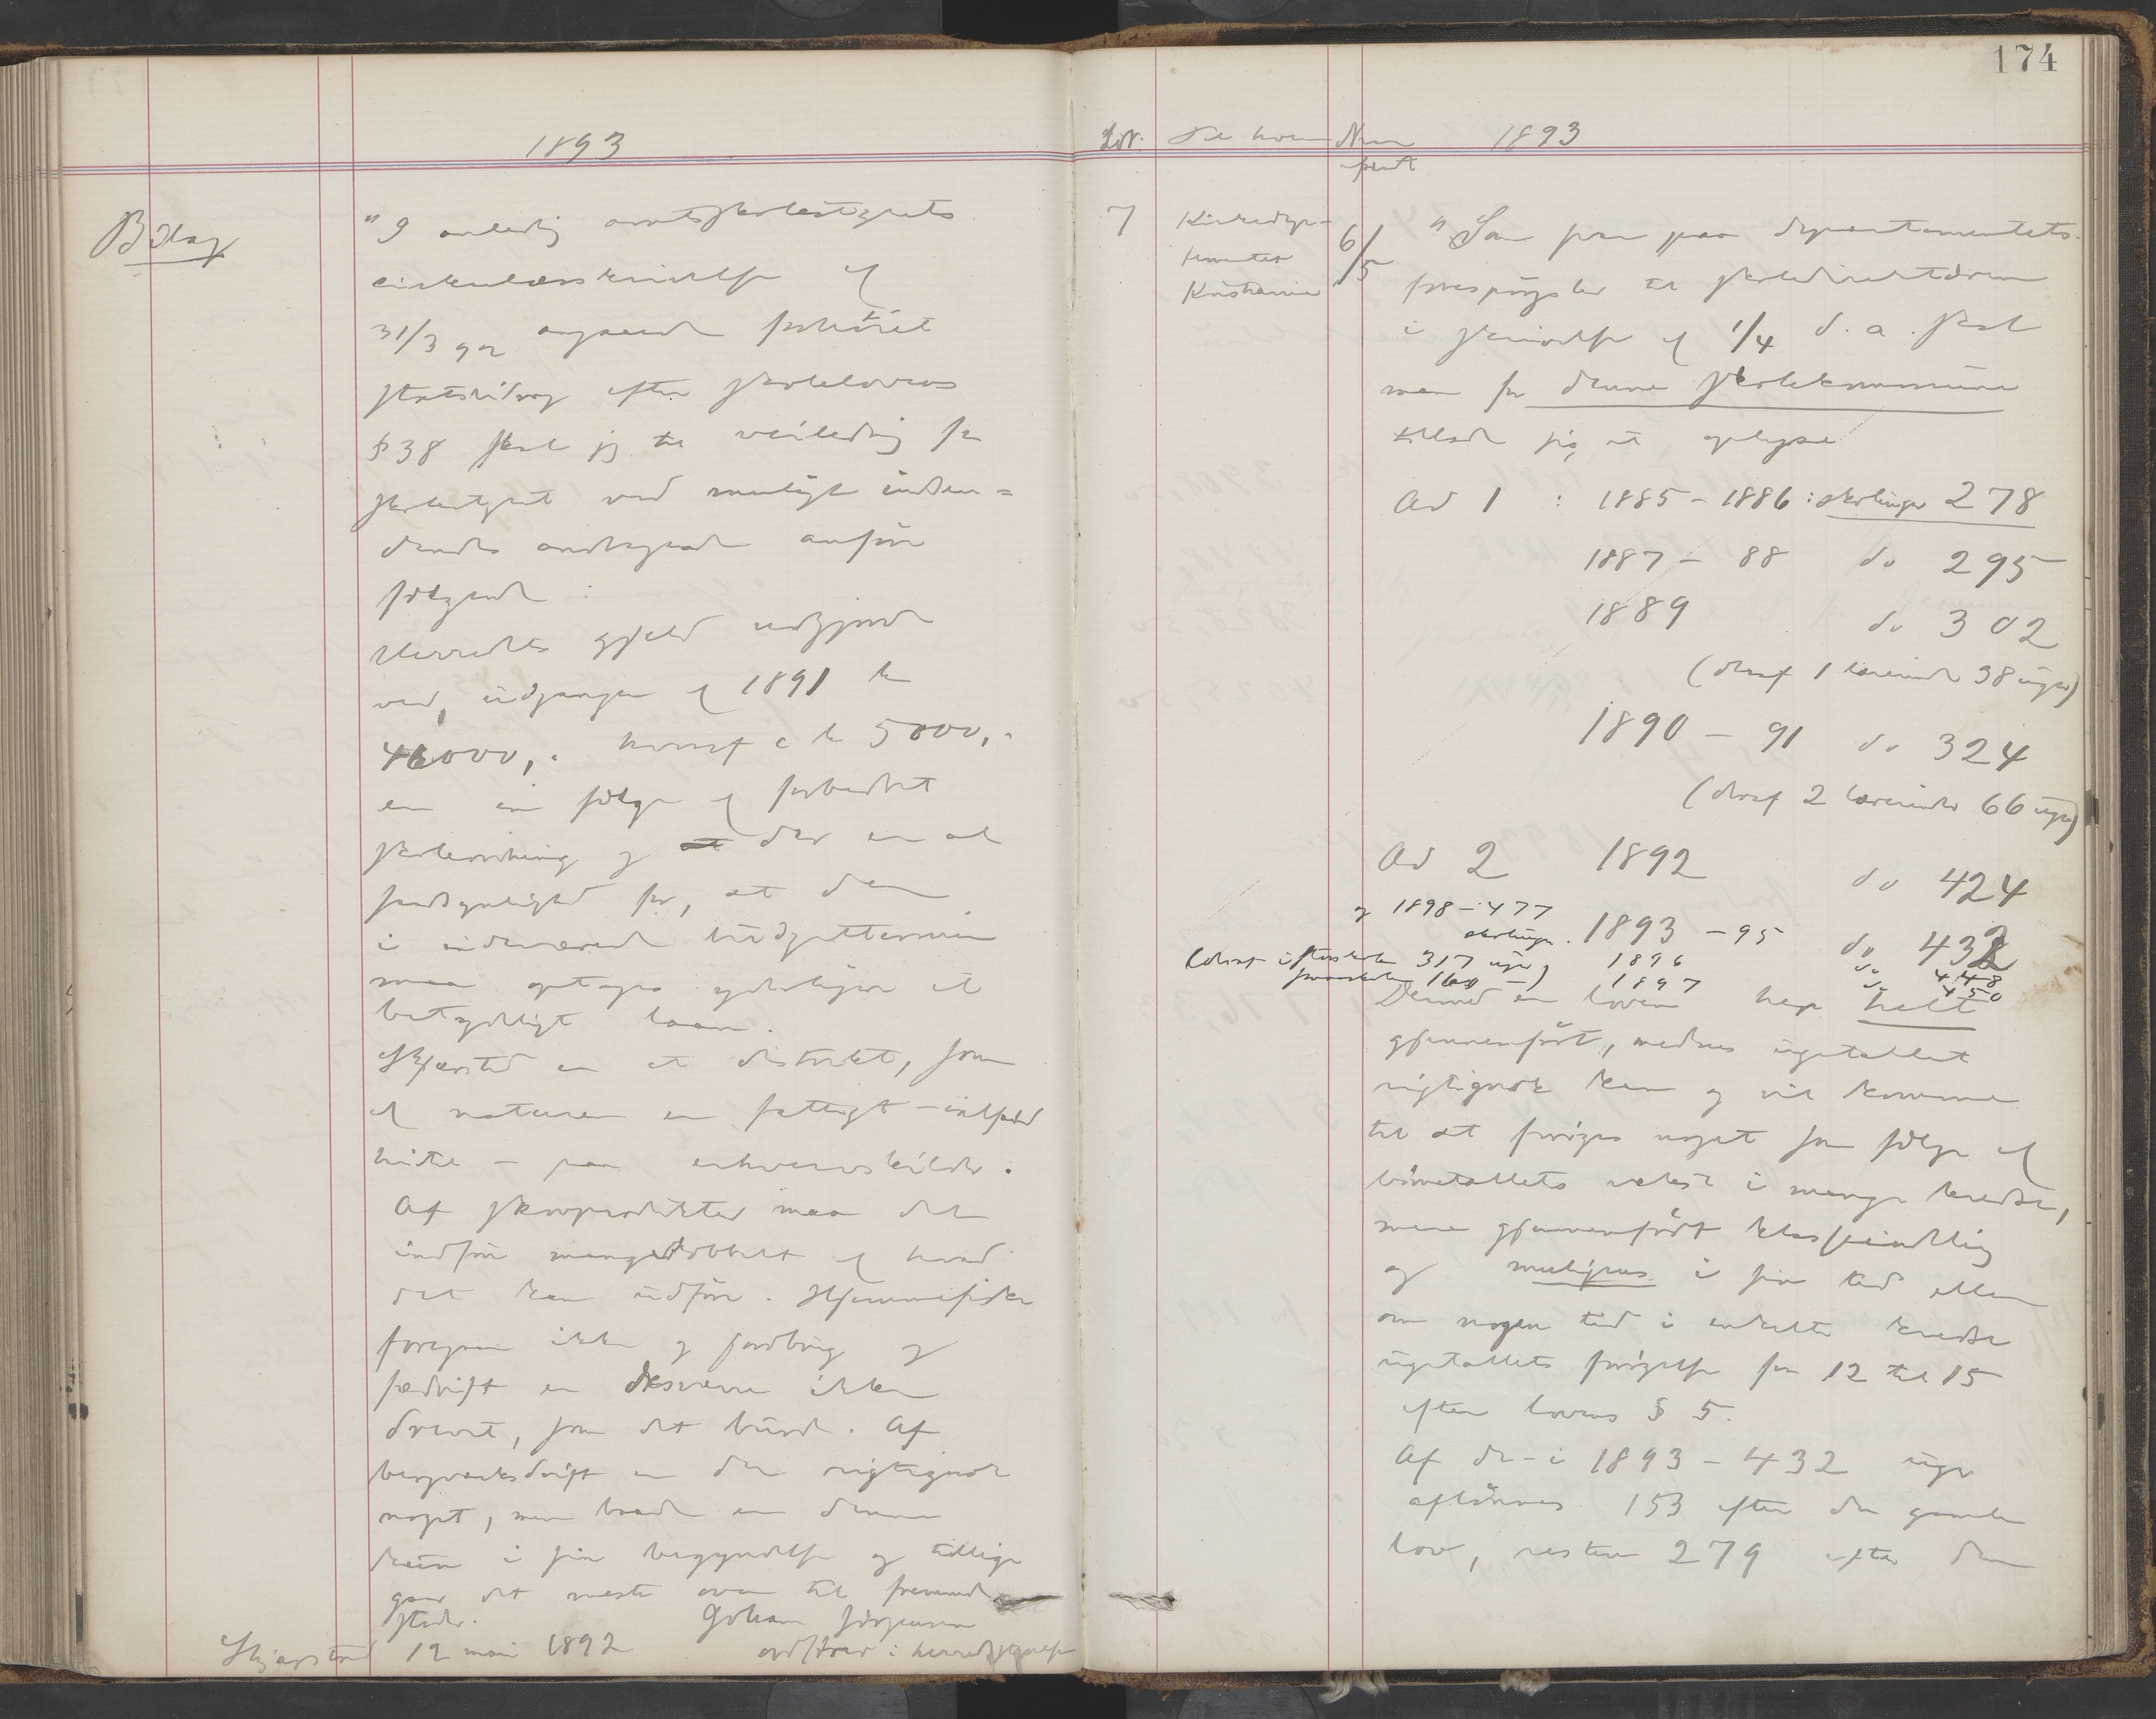 1893
Bilag
"I anledning amtsskolestyrets
cirkulærskrivelse af
31/3 92 angaaende forhöiet
statsbidrag efter skolelovens
§ 38 skal jeg til veiledning for
skolestyret ved muligt inden=
dends andragende anföre
fölgende :
Herredets gjeld udgjorde
ved udgangen af 1891 kr
46000,- hvoraf c kr 5000,-
er en fölge af forbedret
skoleordning og der er al
sandsynlighed for, at der
i indeværende budgettermin
maa optages yderligere et
betydeligt laan.
Skjerstad er et distrikt, som
af naturen er fattigt - ialfald
hidtil - paa erhvervskilder.
Af skovprodukter maa det
indföre mangedobbelt af hvad
det kan udföre. Hjemmefiske
foregaar ikke og jordbrug og
fædrift er desværre ikke
drevet, som det burde. Af
bergverksdrift er der rigtignok
noget, men baade er denne
kun i sin begyndelse og tillige
gaar det meste over til fremmede
steder.
Johan Jörgensen
Skjerstad 12 mai 1892 ordförer i herredsstyrelse
174
Löb. Til hvem Naar 1893
sendt
7 Kirkedepar-
tementet
Kristiania
6/5
"Som svar paa departementets
forespörgsler til skoledirektören
i skrivelse af 1/4 d.a. skal
man for denne skolekommune
tillade sig at oplyse
Ad 1 : 1885 - 1886 : skoleuger 278
1887 - 88 do 295
1889 do 302
(deraf 1 lærerinde 38 uger)
1890 - 91 do 324
(deraf 2 lærerinder 66 uger)
Ad 2 1892 do 424
og 1898 - 477
skoleuger. 1893 - 95 do 432
(deraf i storskolen 317 uger 1896 do 448
smaaskolen 160 -) 1897 do 450
Dermed er loven her helt
gjennemfört, medens ugetallet
rigtignok kan og vil komme
til at foröges noget som fölge af
börnetallets vækst i mange kredse,
mere gjennemfört klasseindeling
og muligens i sin tid eller
om nogen tid i enkelte kredse
ugetallets forögelse fra 12 til 15
efter lovens § 5.
Af de - i 1893 - 432 uger
aflönnes 153 efter den gamle
lov, resten 279 efter den